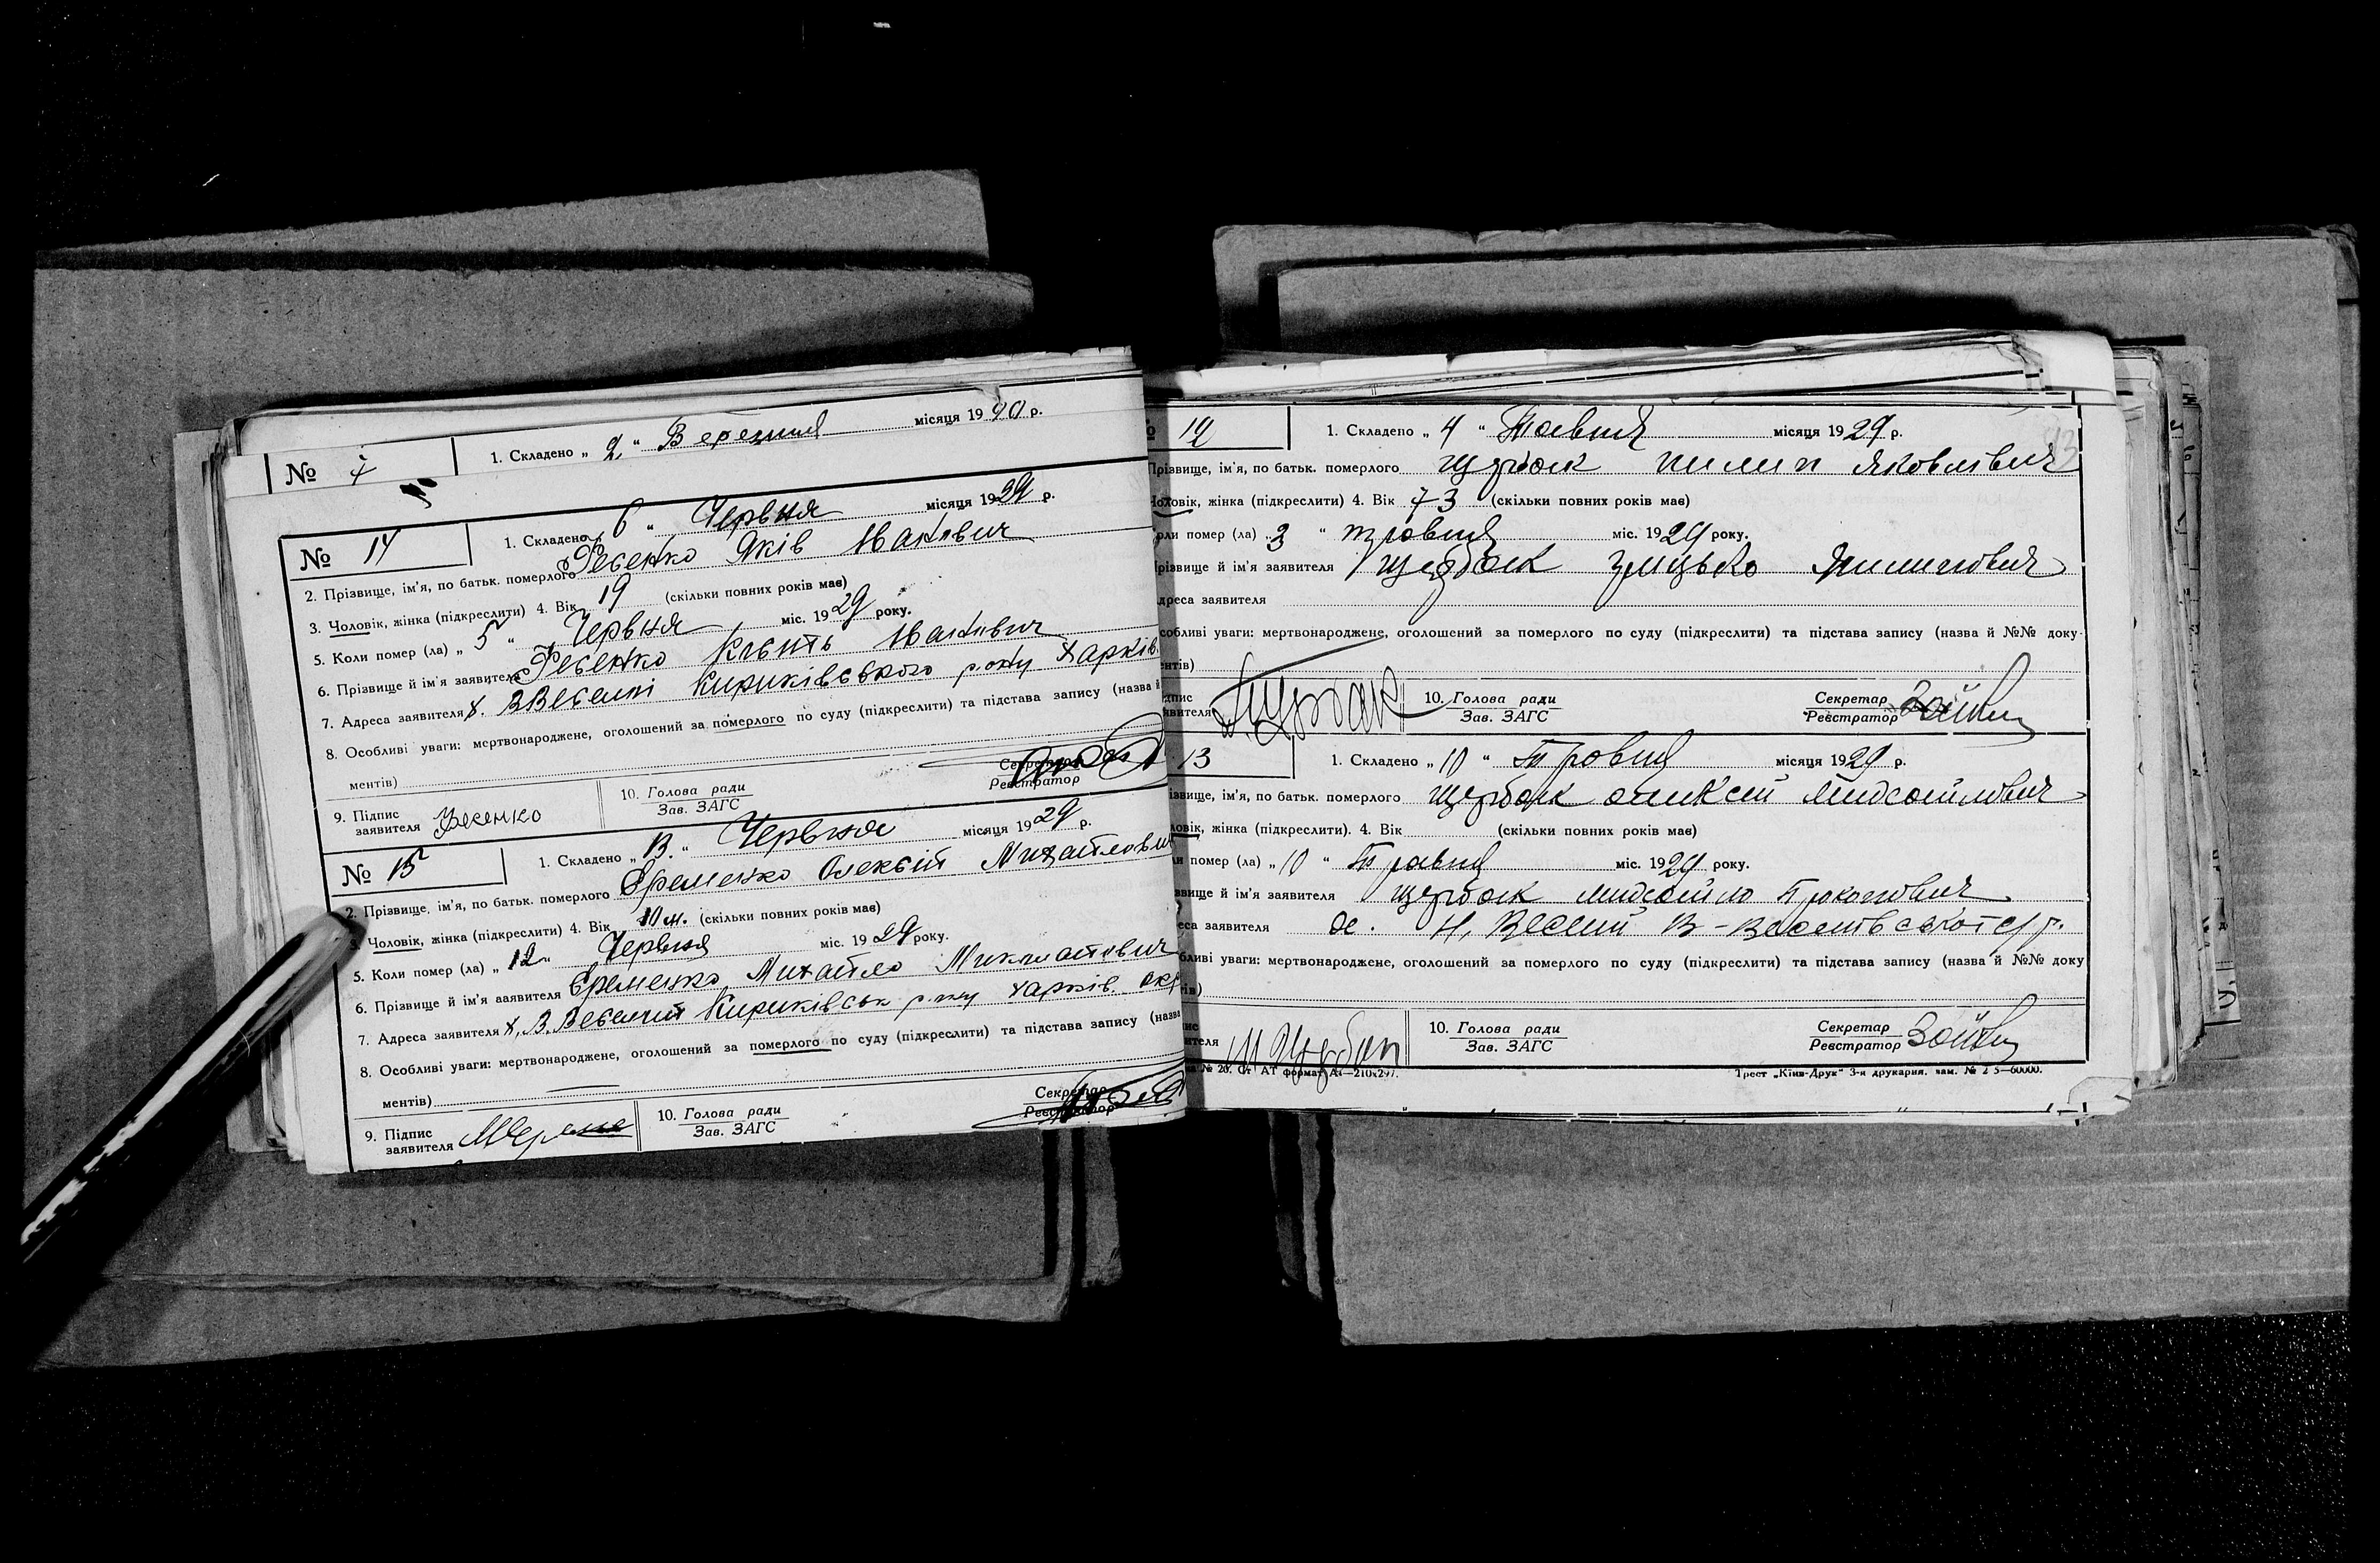 № 7 1. Складено „ 2 “ Березния місяця 1940 р.
№ 14 1. Складено „ 6 “ Червня місяця 1929 р.
2. Прізвище, ім'я, по батьк. померлого Фесенко Яків Иванович
3. Чоловік, жінка (підкреслити) 4. Вік 19 (скільки повних років має)
5. Коли помер (ла) „ 5 “ Червня міс. 1929 року.
6. Прізвище й ім'я заявителя Фесенко Иванович
7. Адреса заявителя х. В Веселий Кириківського р-ну Харків.
8. Особливі уваги: мертвонароджене, оголошений за померлого по суду (підкреслити) та підстава запису (назва й
ментів)
9. Підпис заявителя Фесенко 10. Голова ради Зав. ЗАГС Секретар Реєстратор
№ 15 1. Складено „ 13. “ Червня місяця 1929 р.
2. Прізвище, ім'я, по батьк. померлого Єременко Олексій Михайлович
3. Чоловік, жінка (підкреслити) 4. Вік 10 м. (скільки повних років має)
5. Коли помер (ла) „ 12 “ Червня міс. 1929 року.
6. Прізвище й ім'я заявителя Єременко Михайло Миколайович
7. Адреса заявителя х. В. Веселий Кириківськ р-ну Харків. окр
8. Особливі уваги: мертвонароджене, оголошений за померлого по суду (підкреслити) та підстава запису (назва
ментів)
9. Підпис заявителя 10. Голова ради Зав. ЗАГС Секретар Реєстратор
№ 12 1. Складено „ 4 “ Тавния місяця 1929 р.
Прізвище, ім'я, по батьк. померлого Щербак Пилип Яковлівич
Чоловік, жінка (підкреслити) 4. Вік 73 (скільки повних років має)
Коли помер (ла) „ 3 “ травня міс. 1929 року.
Прізвище й ім'я заявителя Щербак Дмицько Пилипович
Адреса заявителя
особливі уваги: мертвонароджене, оголошений за померлого по суду (підкреслити) та підстава запису (назва й №№ доку-
ентів)
Щербак 10. Голова ради Зав. ЗАГС Секретар Реєстратор
13 1. Складено „ 10 “ Травня місяця 1929 р.
ізвище, ім'я, по батьк. померлого Щербак Оликсий Мидсайлович
ловік, жінка (підкреслити). 4. Вік (скільки повних років має)
ли помер (ла) „ 10 “ Травня міс. 1929 року.
звище й ім'я заявителя Щербак Мидсайло Прокопович
еса заявителя х. Н. Веселий В-Веселівської с/р.
бливі уваги: мертвонароджене, оголошений за померлого по суду (підкреслити) та підстава запису (назва й №№ доку
ів)
М Щербак 10. Голова ради Зав. ЗАГС Секретар Реєстратор
№ 20. Ст АТ формат А4—210х297. Трест „Київ-Друк“ 3-я друкарня.